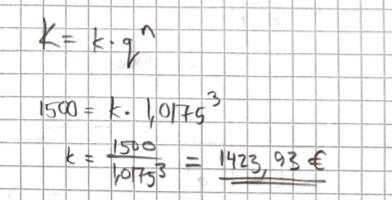 K = k · qⁿ
1500 = k · 1,0175³
k = 1500 / 1,0175³ = 1423,93 €